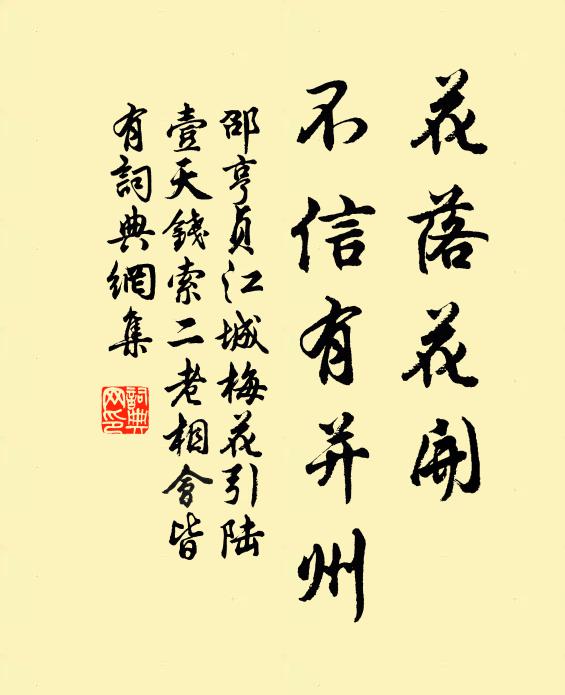 花落花開
不信有并州
邵亨貞江城梅花引陸
壹天錢索二老相會皆
有詞典網集
詞典
网印